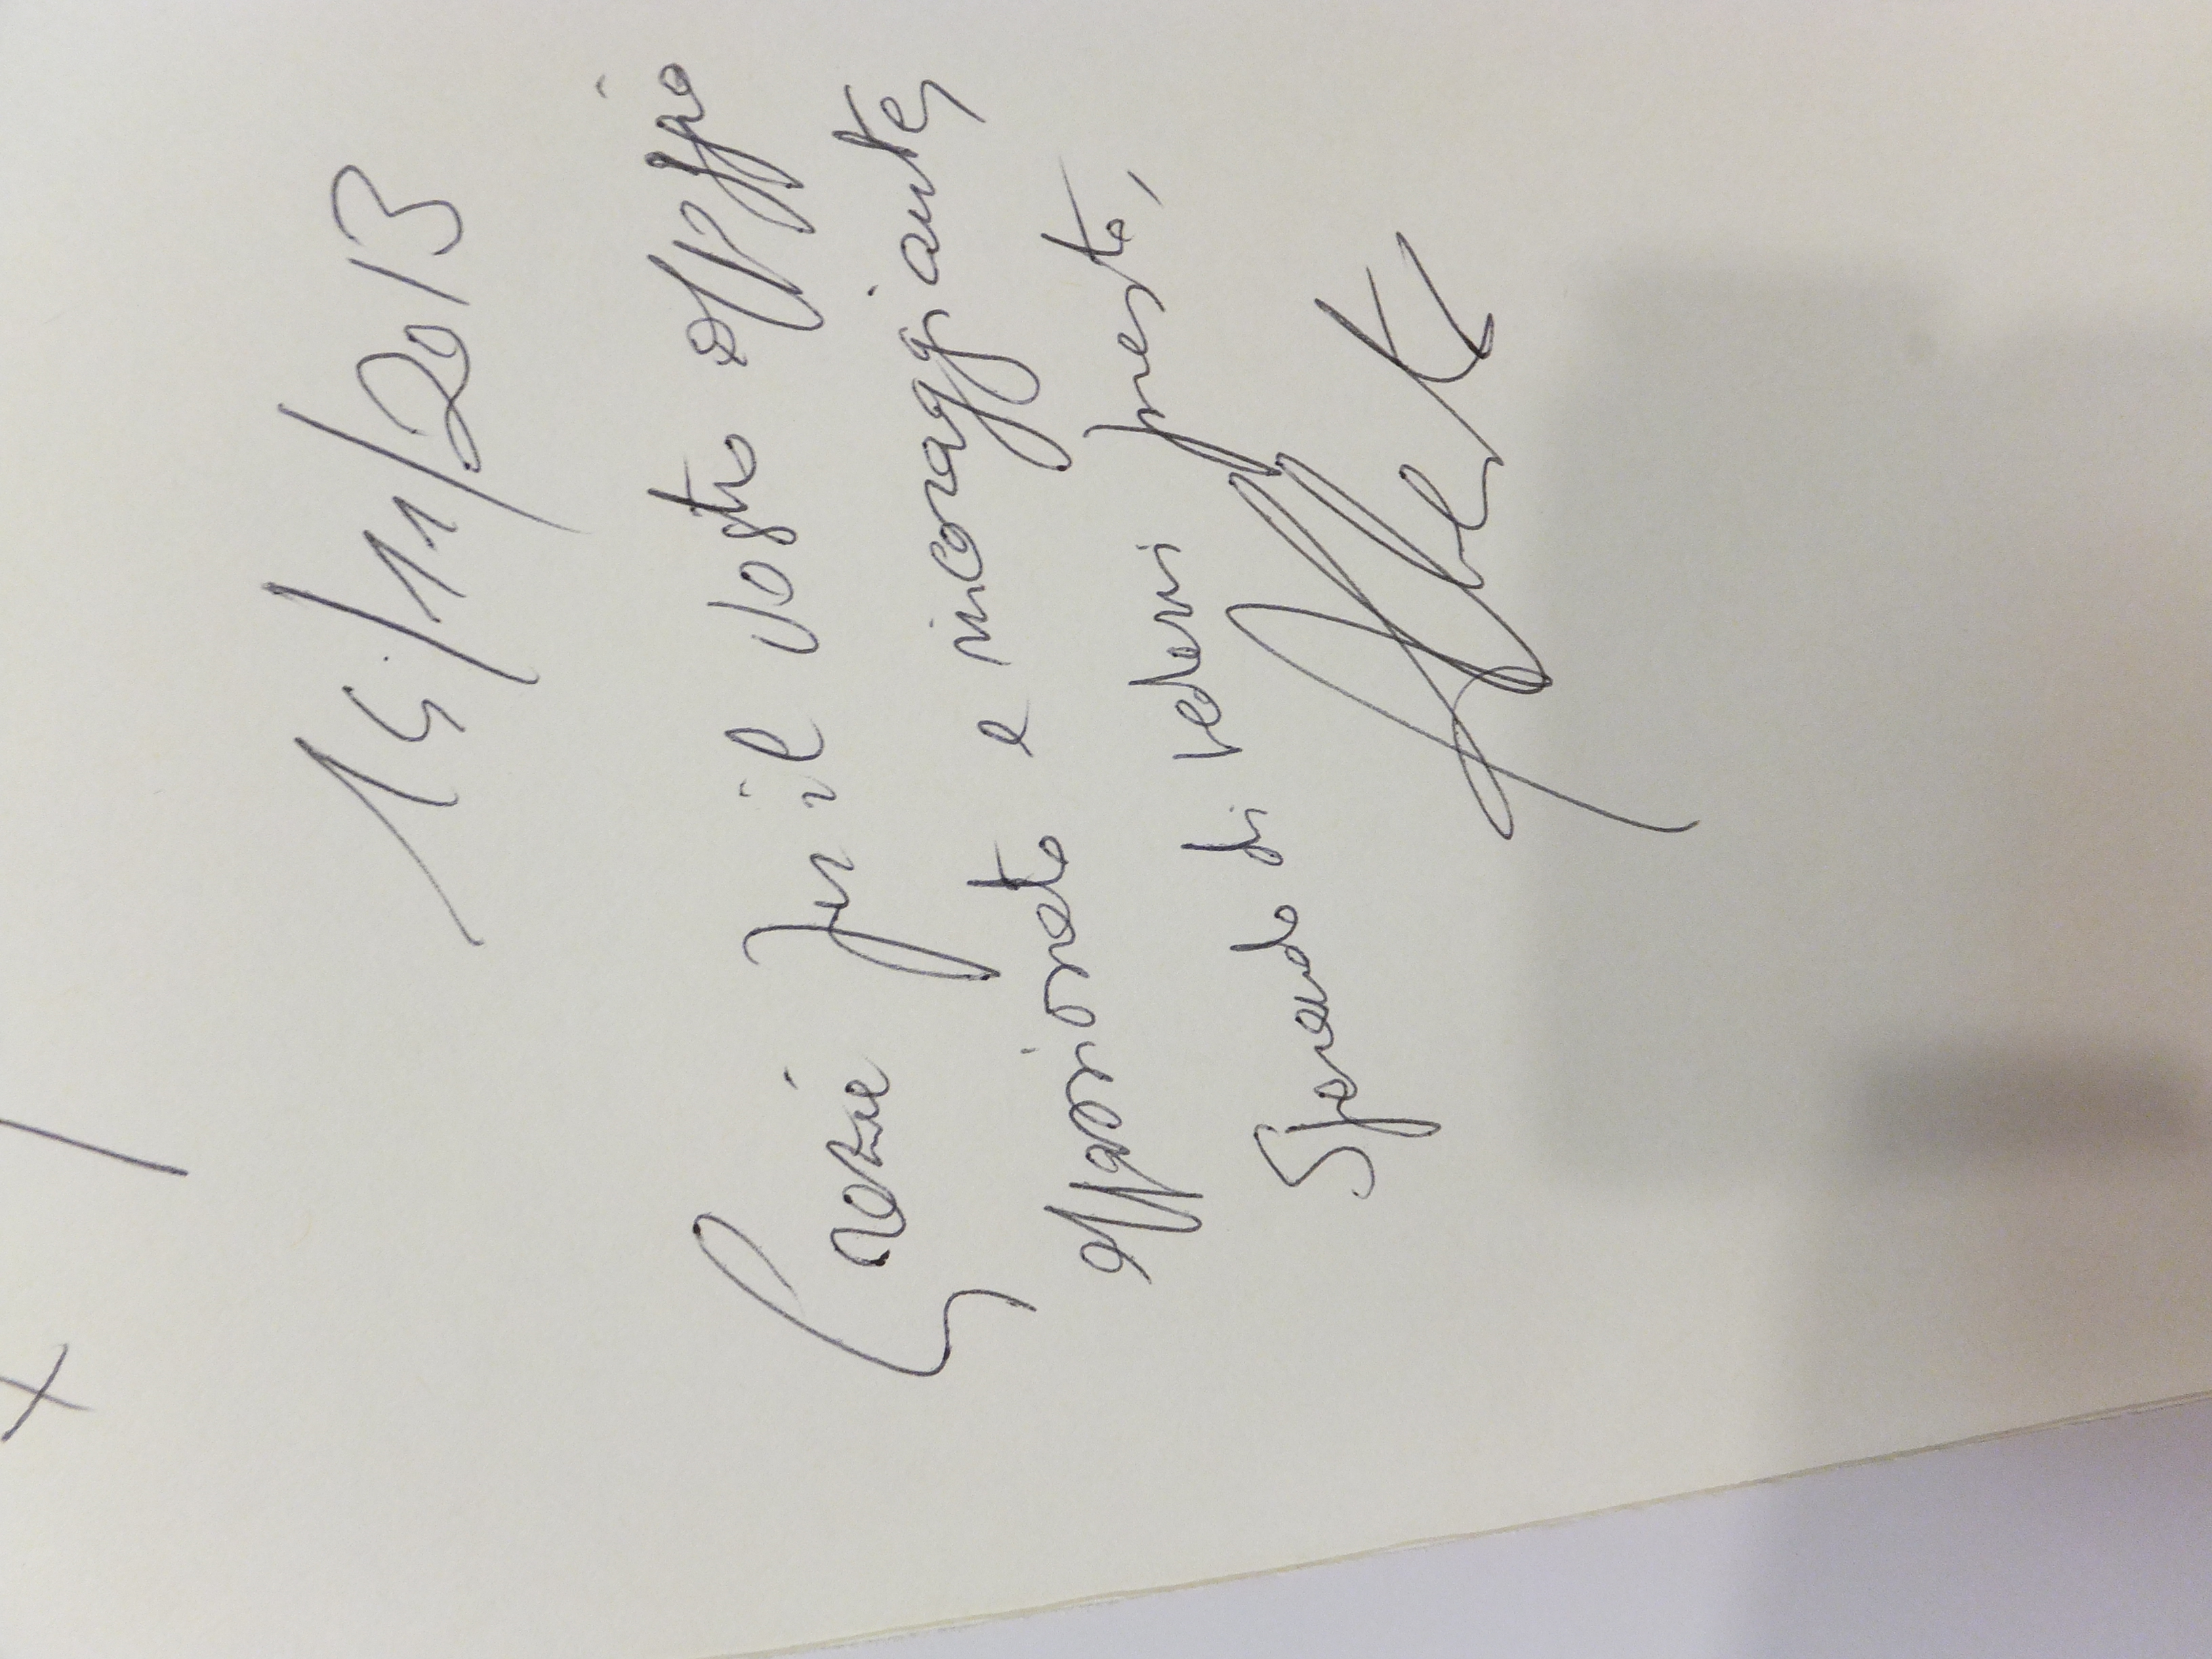 15/11/2013
Grazie per il vostro appoggio
appassionato e incoraggiante,
Sperando di vedervi presto,